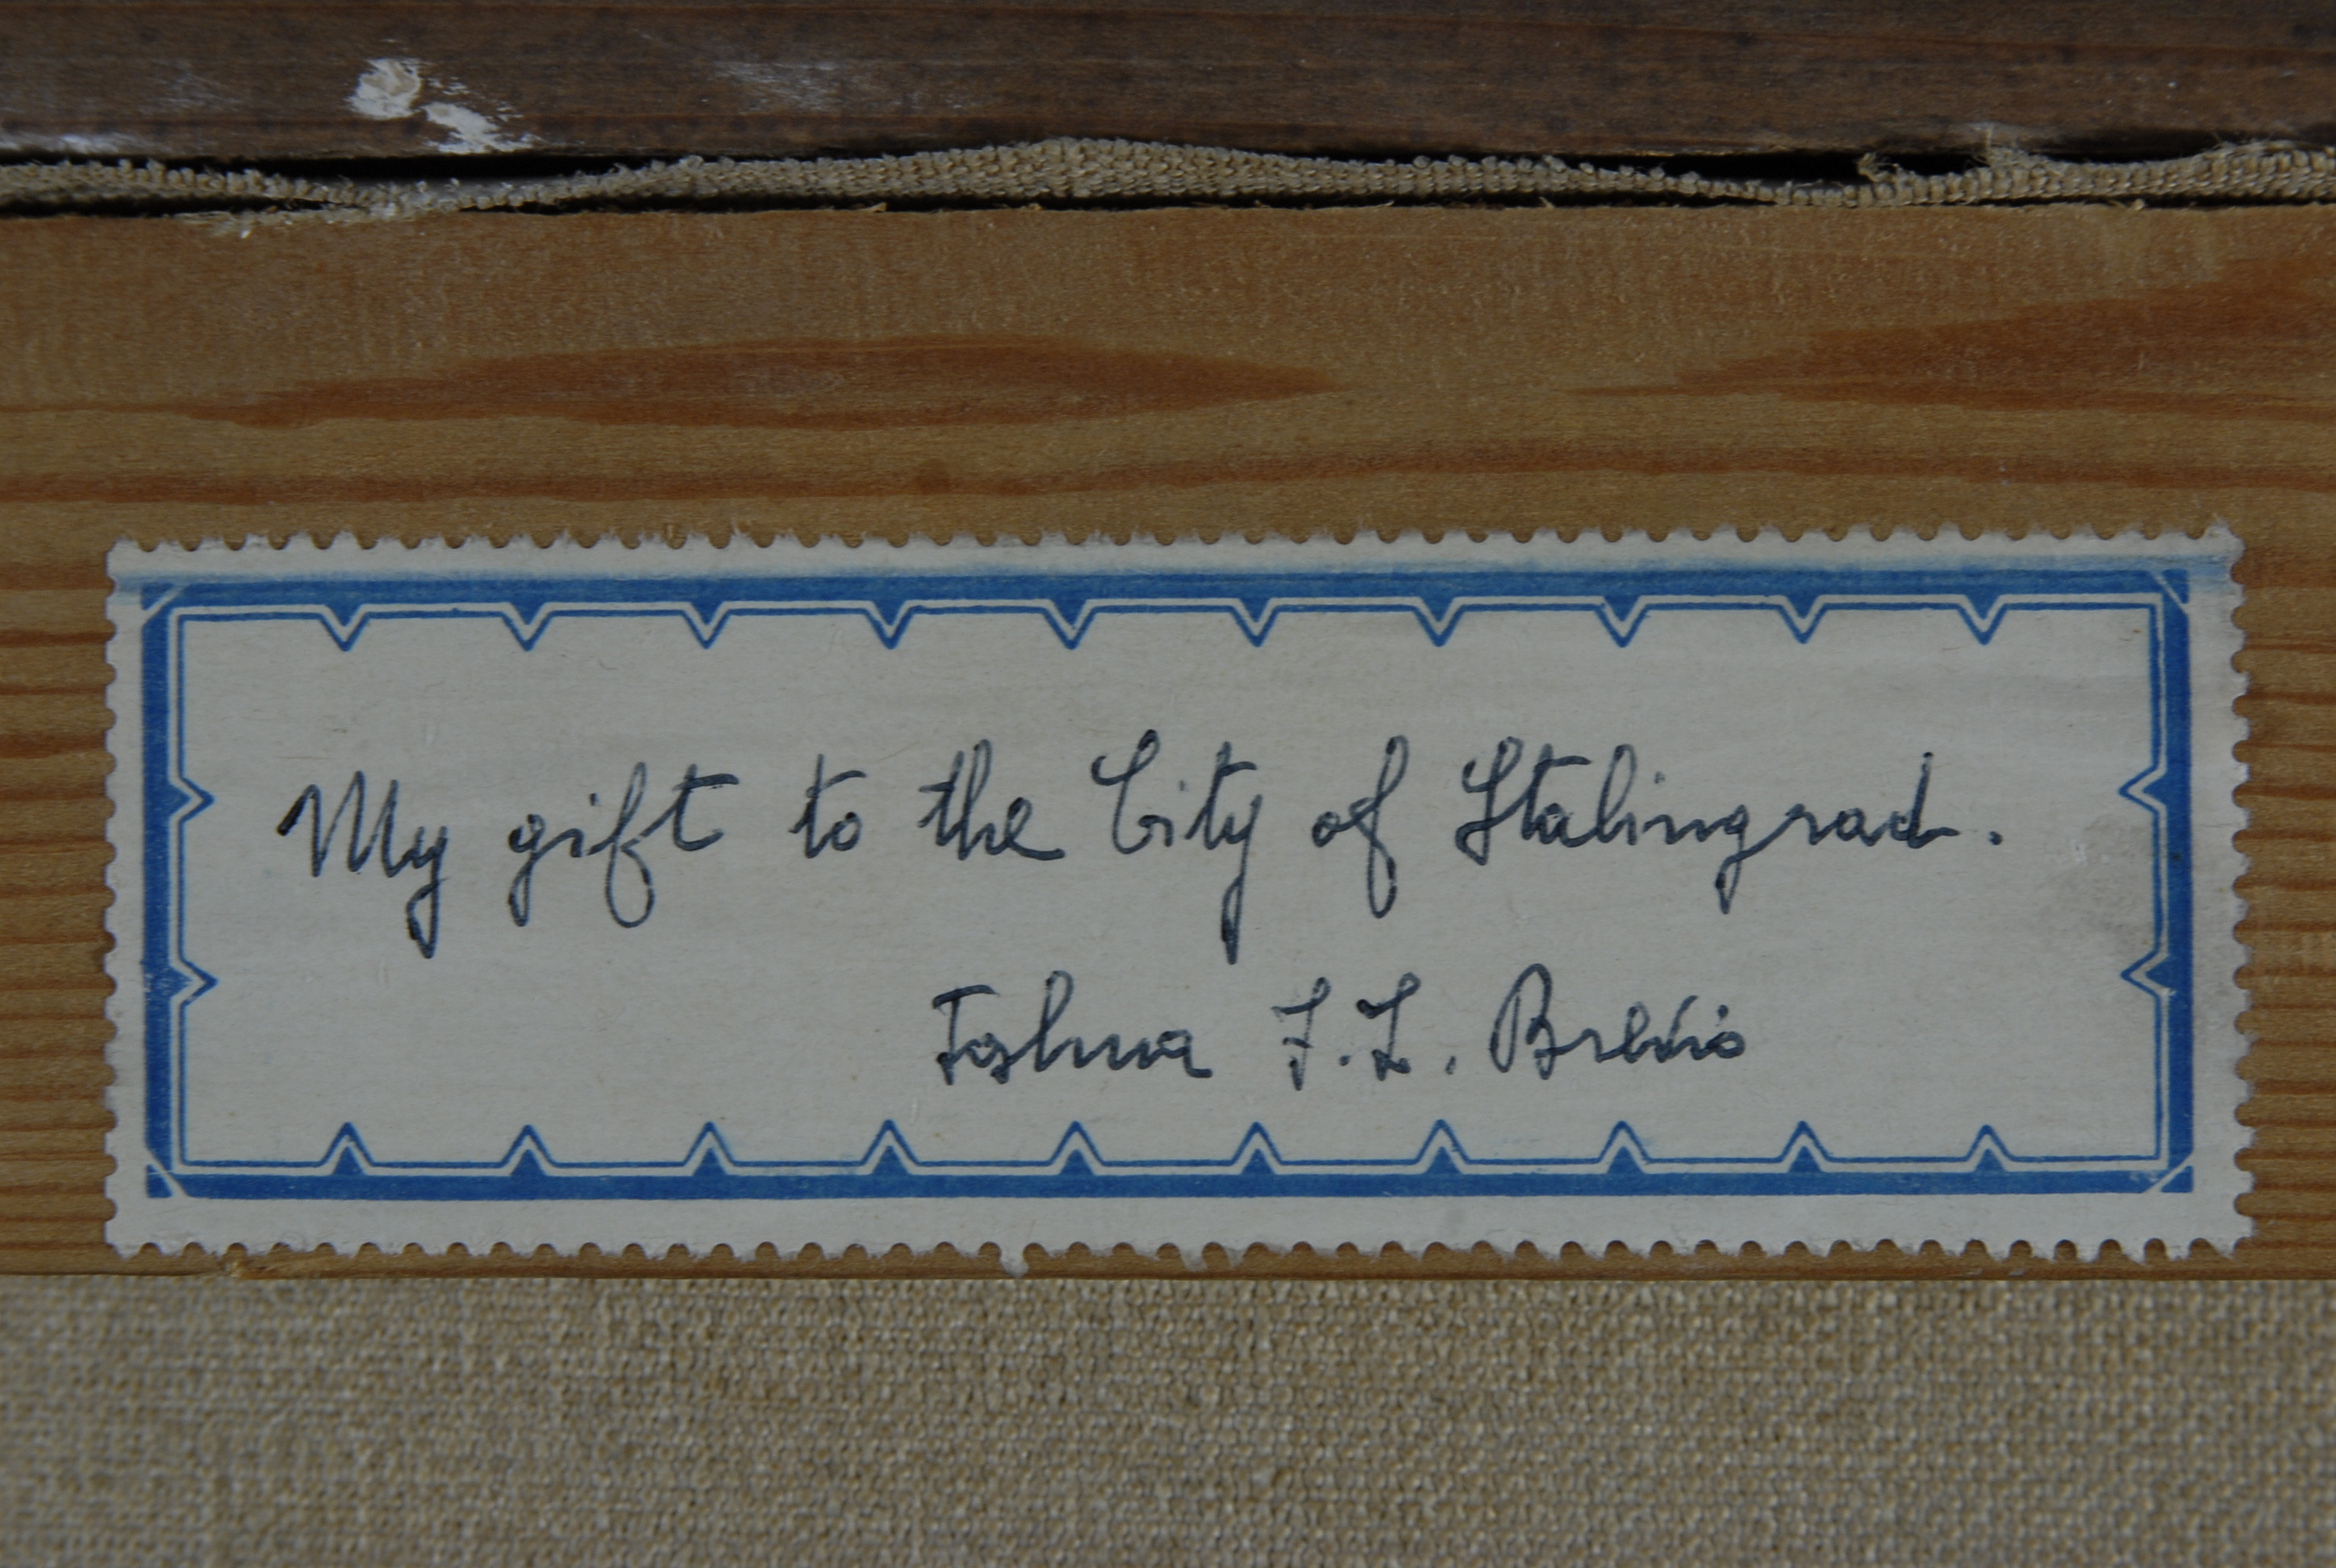 My gift to the City of Stalingrad.
Joshua F.L.